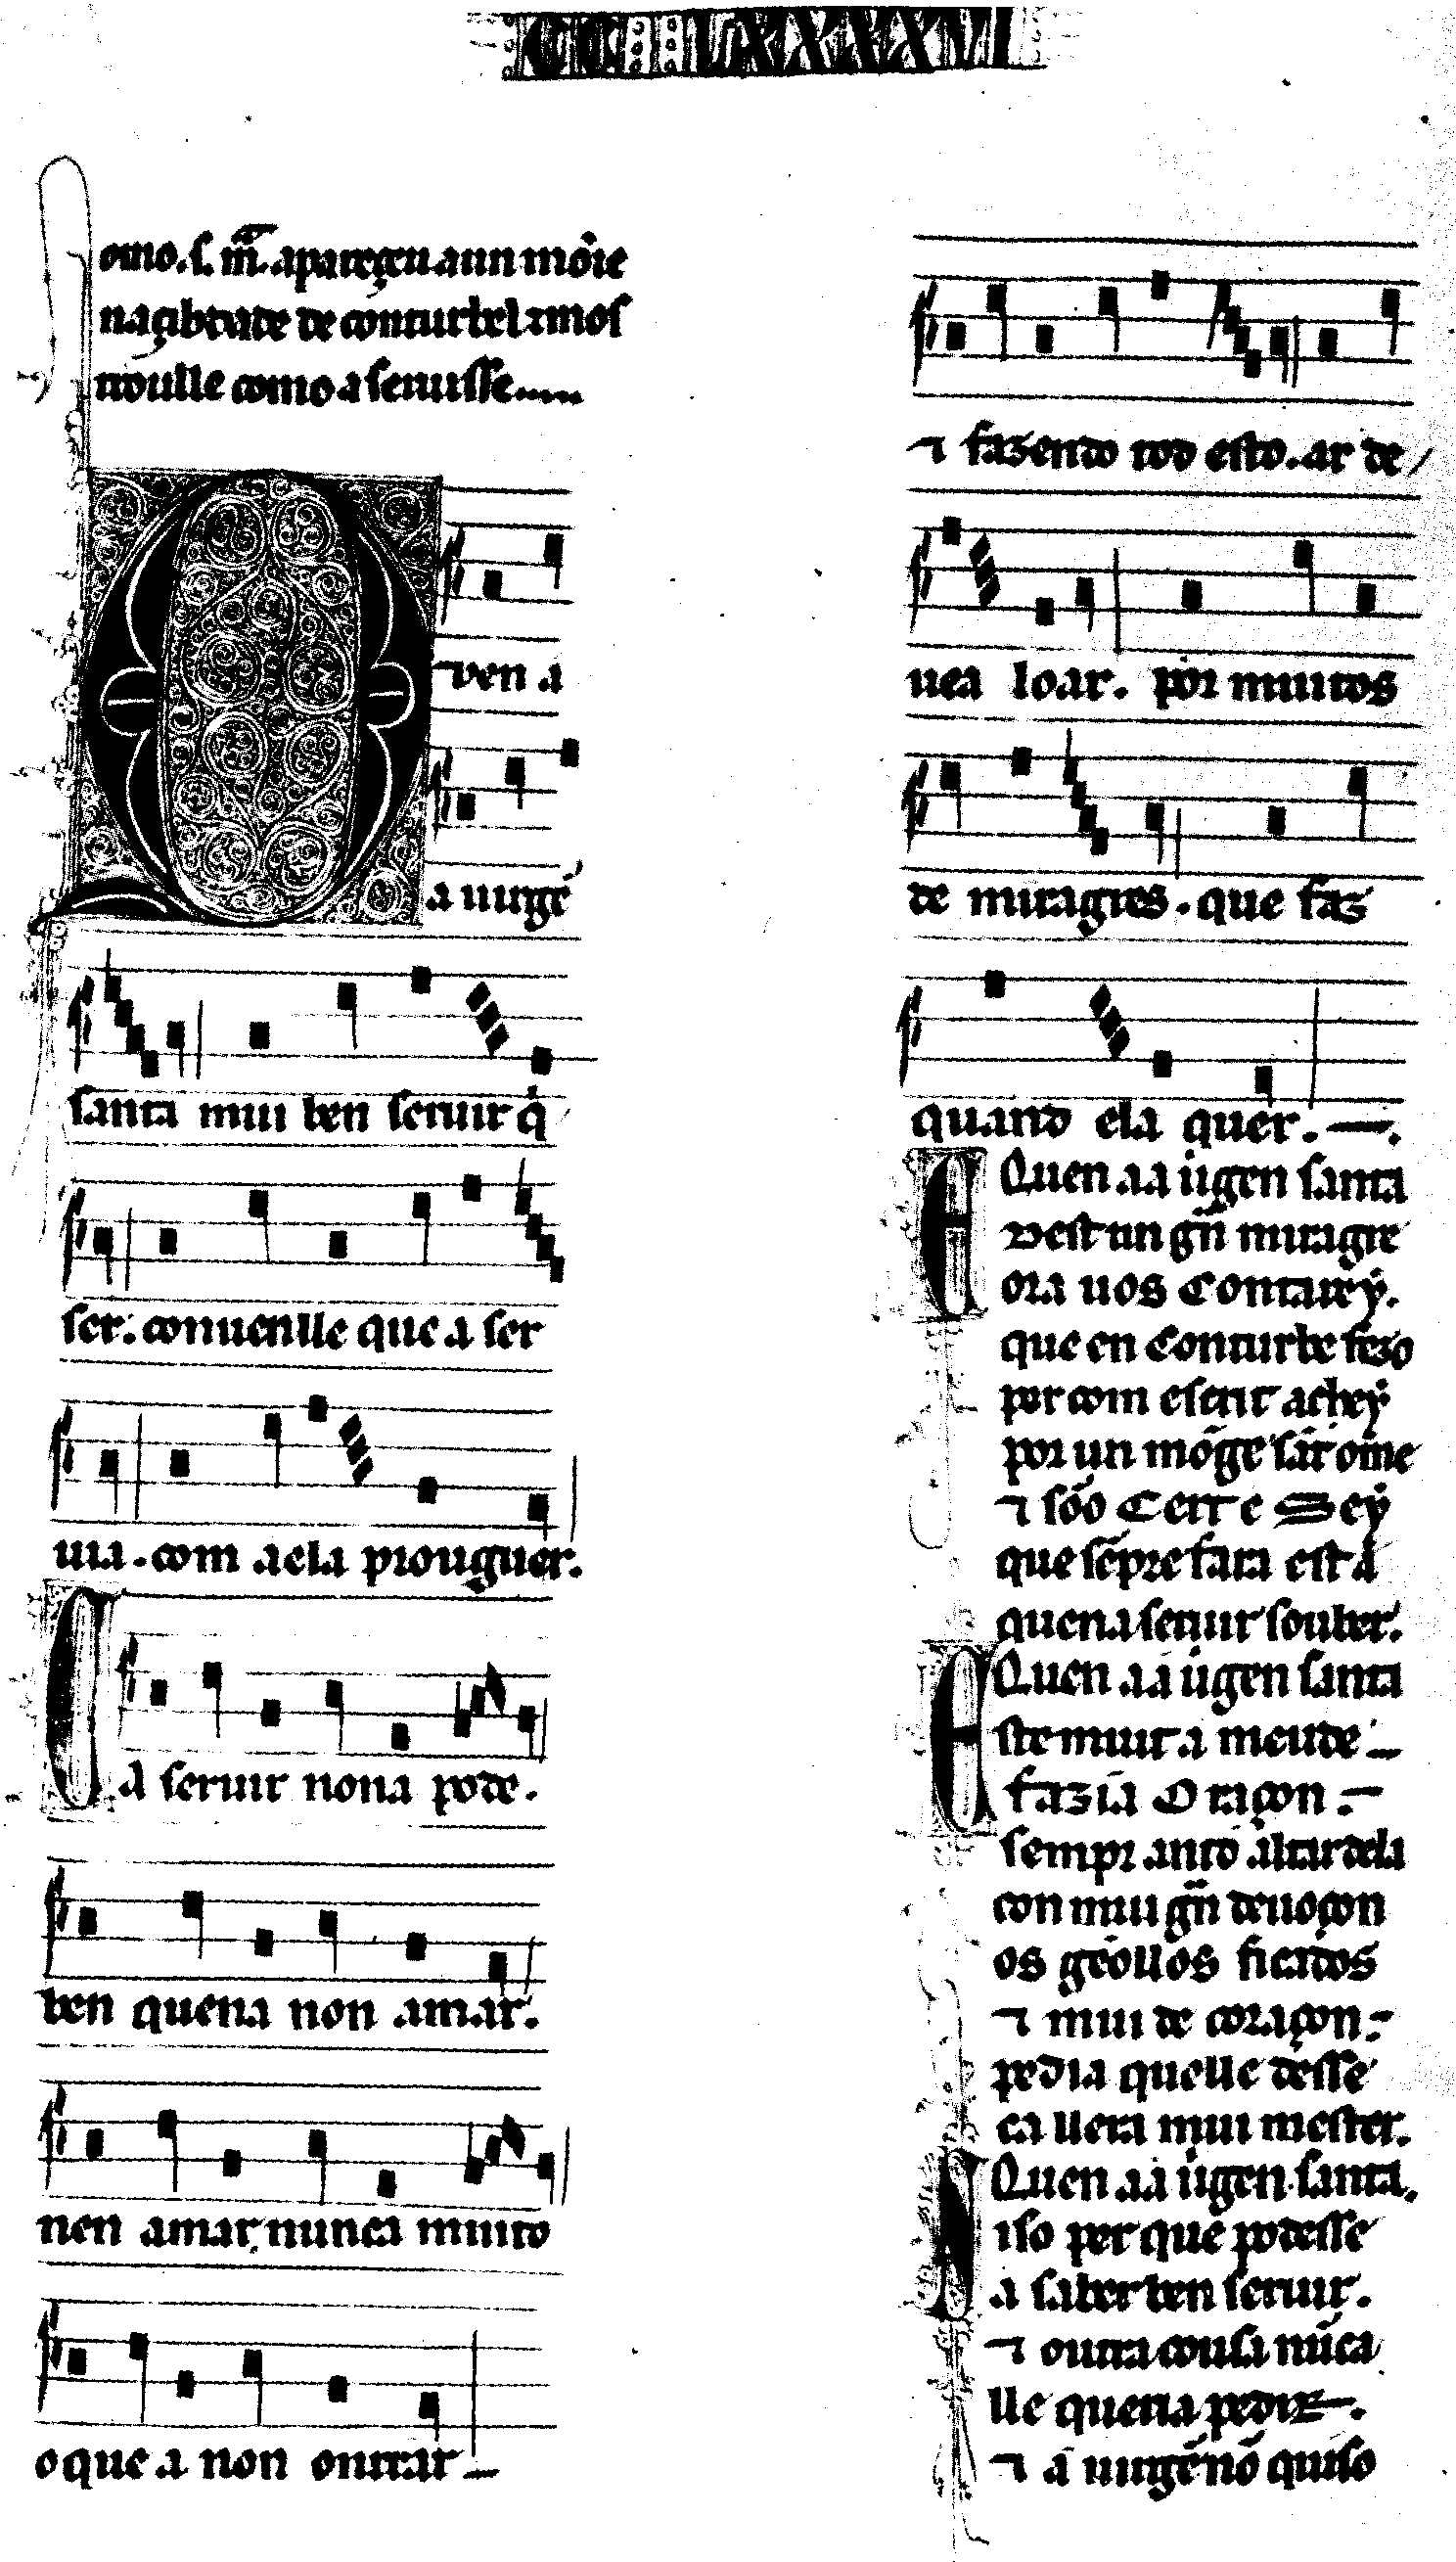 CC LXXXXVI
omo. s. m̃. apareçeu a un mõie
na çibdade de conturbel ⁊ mos
troulle como a seruisse....
Quen a
a uirgẽ
santa mui ben seruir q̇
ser. conuenlle que a ser
uia. com a ela prouguer.
Ca seruir nona pode.
ben quena non amar.
nen amar, nunca muito
o que a non onrrar
⁊ fazendo tod esto. ar de
uea loar. por muitos
de miragres. que faz
quand ela quer.
Quen a a uigen santa
Dest un gñ miragre
ora uos Contarey.
que en Conturbe fezo
per com escrit achey
por un mõge sãt ome
⁊ sóo Cert e Sey
que sẽpre fara est a
quen a seruir souber.
Quen a a uigen santa
Este muit a meude
fazia Oraçon.
sempr anto altar dela
con mui gñ deuoçon
os gẽollos ficados
⁊ mui de coraçon.
pedia quelle désse
ca llera mui mester.
Quen a a uigen santa.
Aiso per que podesse
a saber ben seruir.
⁊ outra cousa nũca
lle queria pedir.
⁊ a uirgẽ nõ quiso